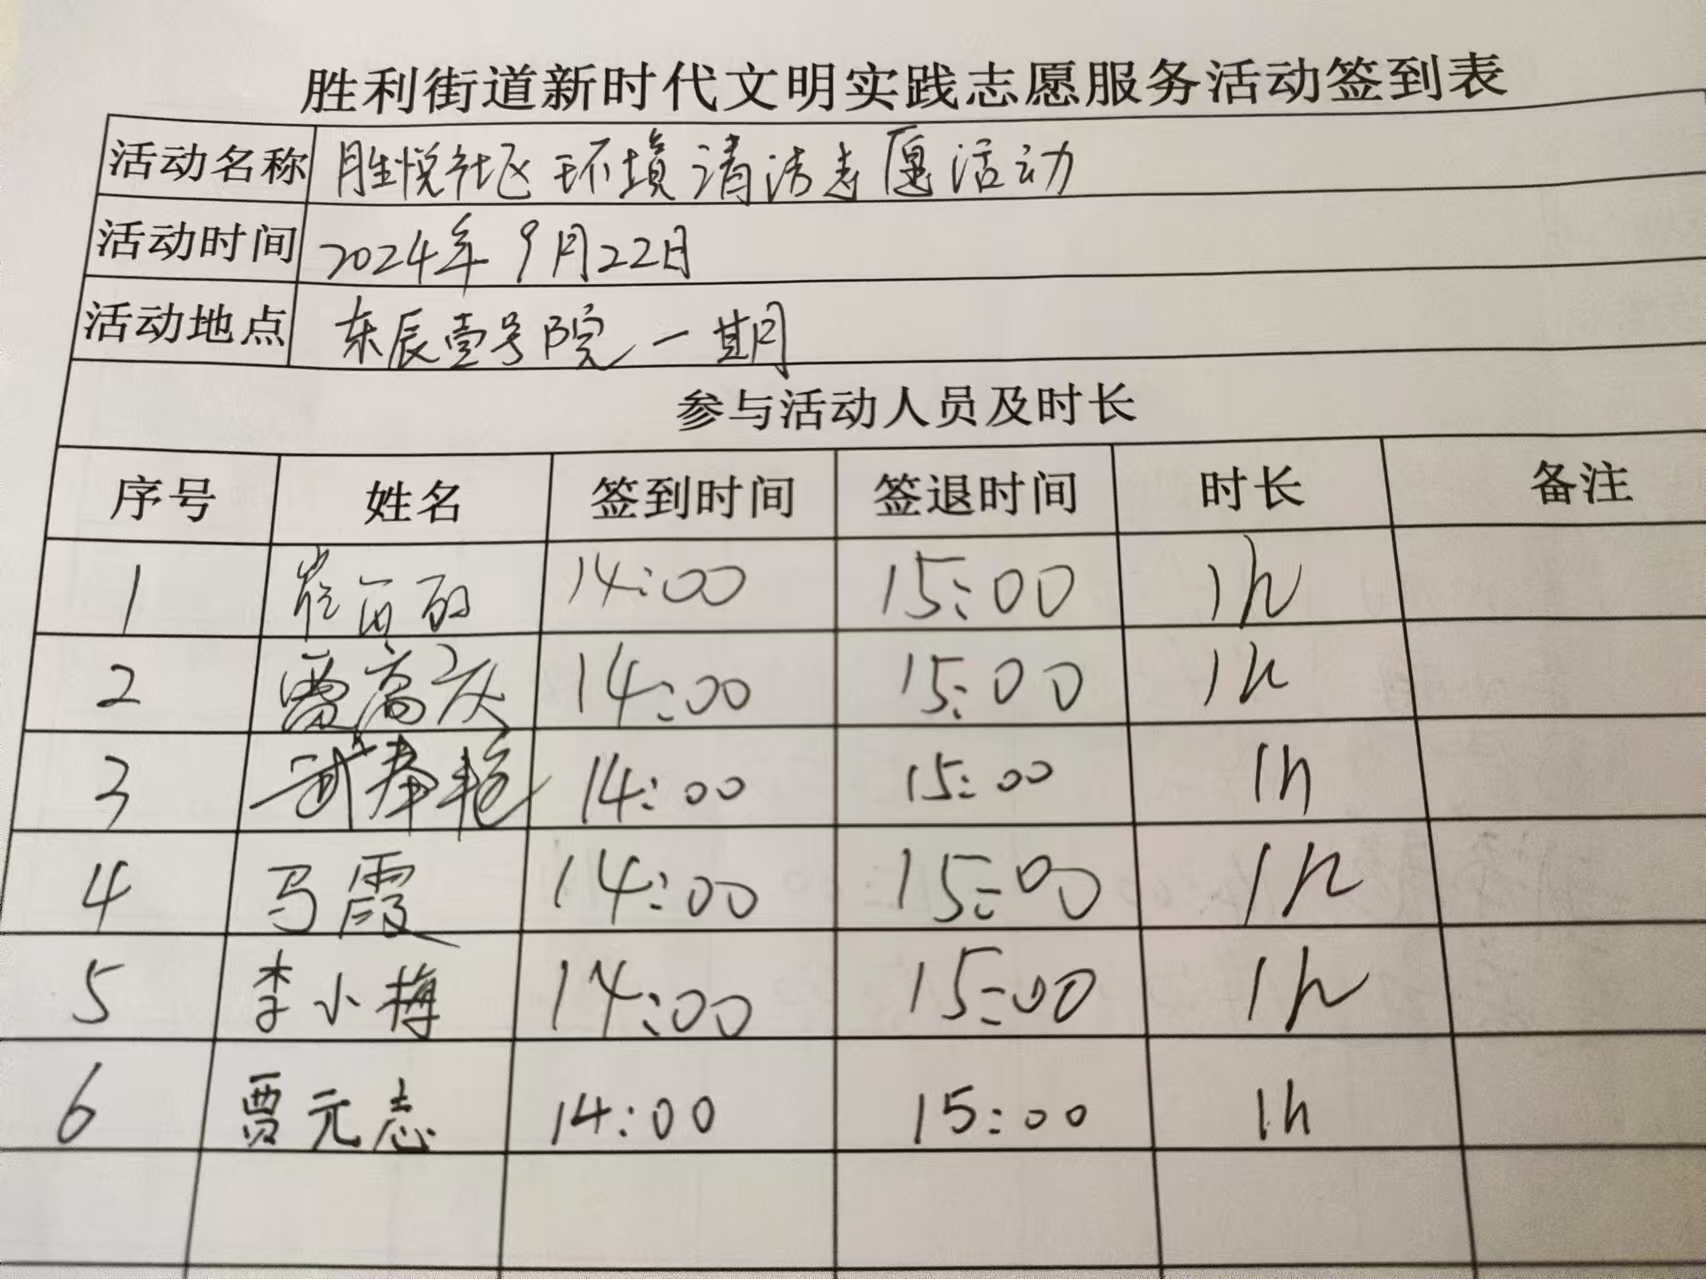 胜利街道新时代文明实践志愿服务活动签到表
活动名称 胜悦社区环境清洁志愿活动
活动时间 2024年9月22日
活动地点 东辰壹号院一期
参与活动人员及时长
序号 姓名 签到时间 签退时间 时长 备注
1 14:00 15:00 1h
2 贾高庆 14:00 15:00 1h
3 武春艳 14:00 15:00 1h
4 马霞 14:00 15:00 1h
5 李小梅 14:00 15:00 1h
6 贾元志 14:00 15:00 1h